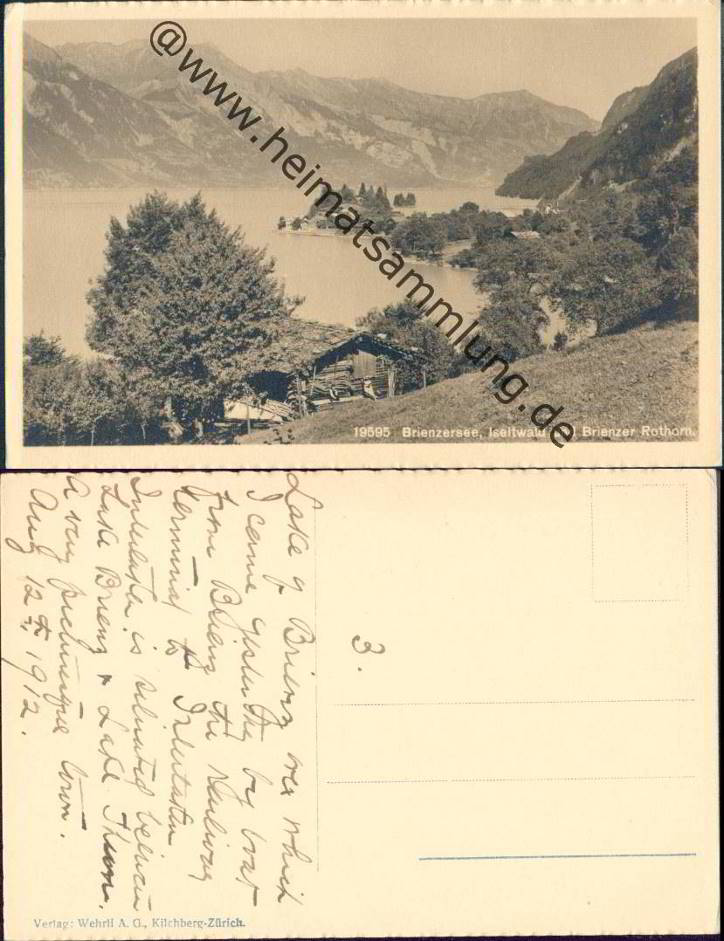 @www.heimatsammlung.de
19595 Brienzersee, Iseltwald Brienzer Rothorn.
Lake of Brienz over which
I came yesterday by boat
from Brienz the railway
terminus to Interlaken
Interlaken is situated between
Lake Brienz & Lake Thun.
A very picturesque town.
Aug 12th 1912.
3.
Verlag: Wehrli A. G., Kilchberg-Zürich.